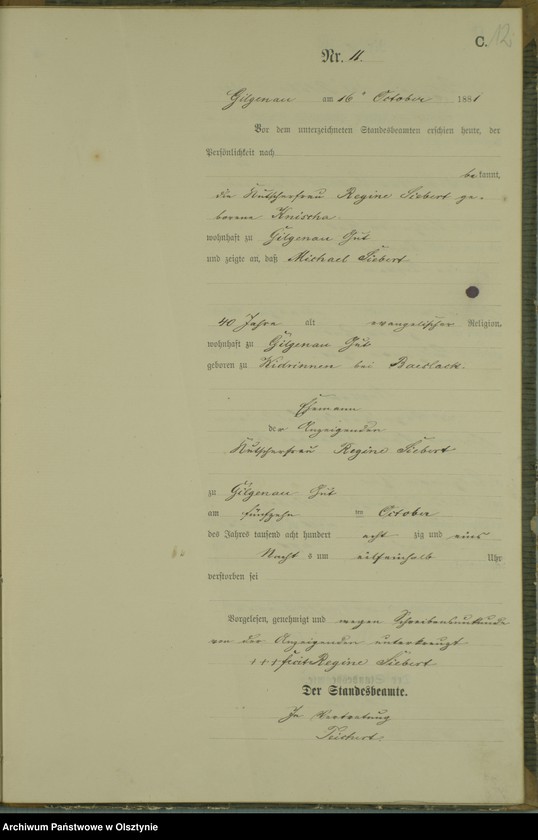 C. 12.
Nr. 11.
Gilgenau am 16ten October 1881
Vor dem unterzeichneten Standesbeamten erschien heute, der
Persönlichkeit nach
bekannt,
die Kutscherfrau Regine Siebert ge-
borene
wohnhaft zu Gilgenau Gut
und zeigte an, daß Michael Siebert
40 Jahre alt evangelischer Religion,
wohnhaft zu Gilgenau Gut
geboren zu bei
Ehemann
der Anzeigenden
Kutscherfrau Regine Siebert
zu Gilgenau Gut
am fünfzehn ten October
des Jahres tausend acht hundert acht zig und eins
Nacht s um eilfeinhalb Uhr
verstorben sei
Vorgelesen, genehmigt und wegen Schreibensunkunde
von der Anzeigenden unterkreuzt
+++ fecit Regine Siebert
Der Standesbeamte.
In Vertretung
Archiwum Państwowe w Olsztynie